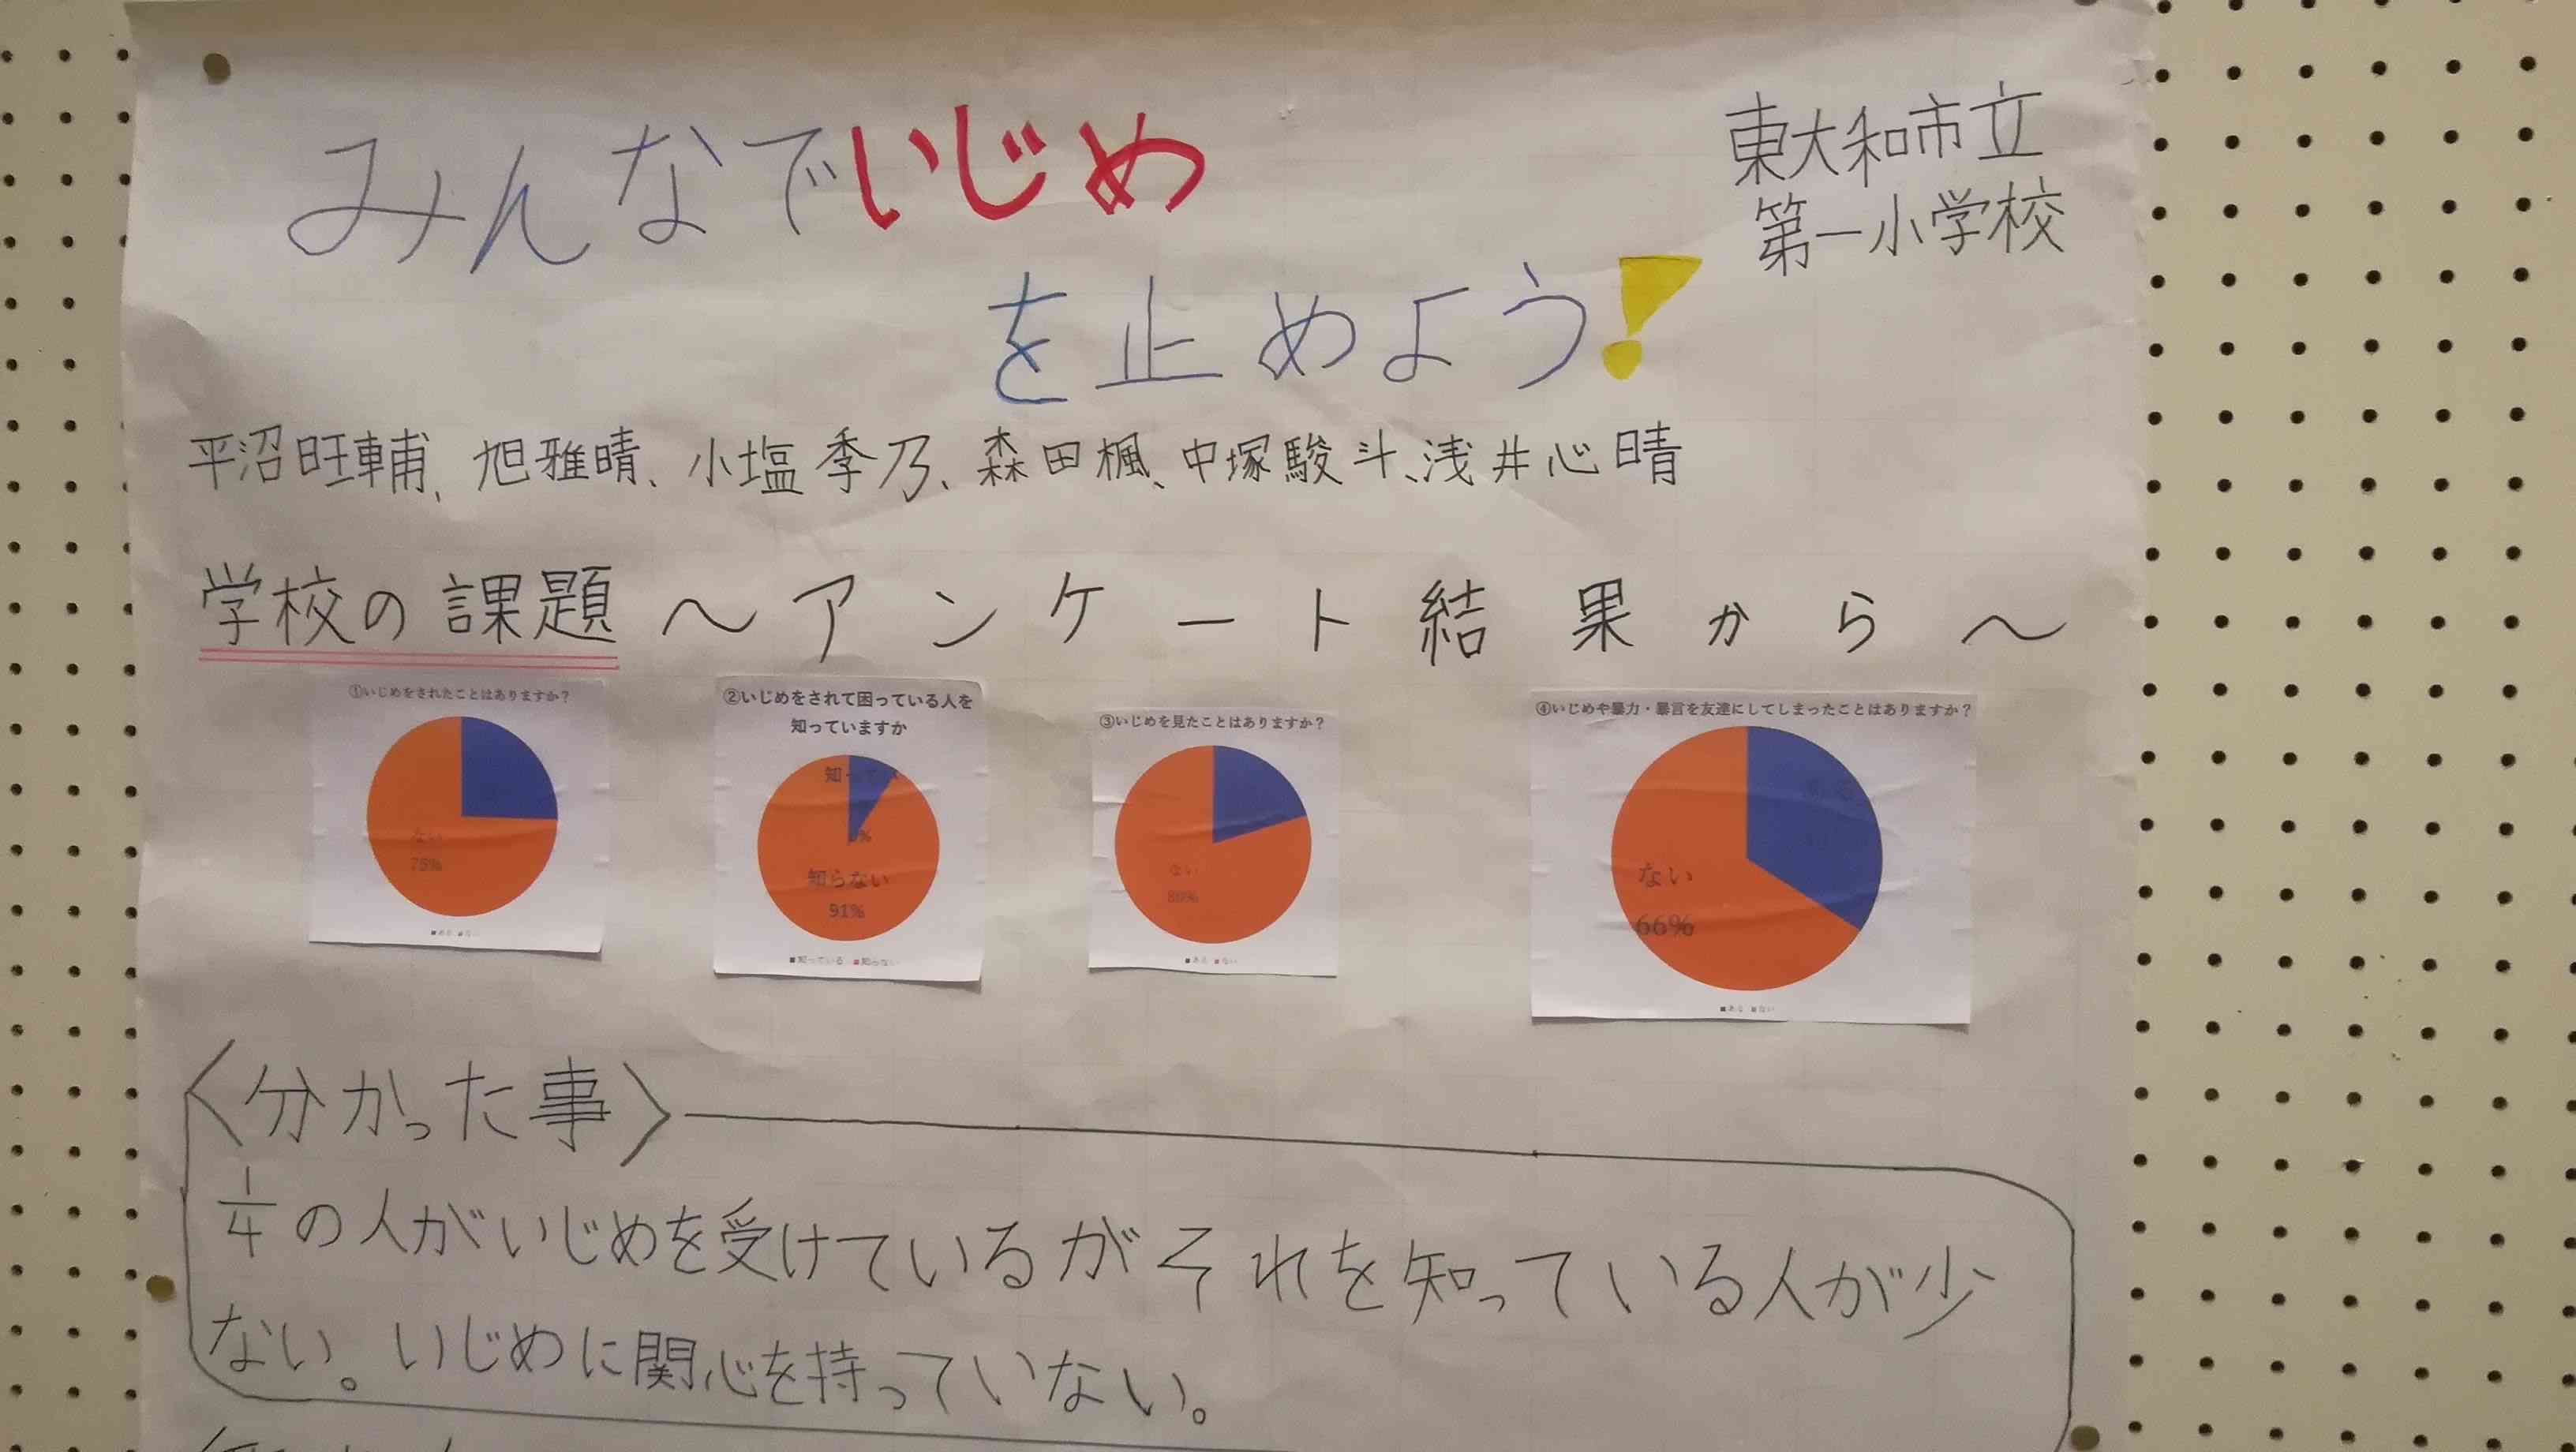 みんなでいじめ
を止めよう!
東大和市立
第一小学校
平沼旺輔、旭雅晴、小塩季乃、森田楓、中塚駿斗、浅井心晴
学校の課題 〜アンケート結果から〜
①いじめをされたことはありますか?
ない
75%
②いじめをされて困っている人を
知っていますか
知らない
91%
■知っている ■知らない
③いじめを見たことはありますか?
ない
80%
■ある ■ない
④いじめや暴力・暴言を友達にしてしまったことはありますか?
ない
66%
■ある ■ない
〈分かった事〉
1/4の人がいじめを受けているがそれを知っている人が少
ない。いじめに関心を持っていない。